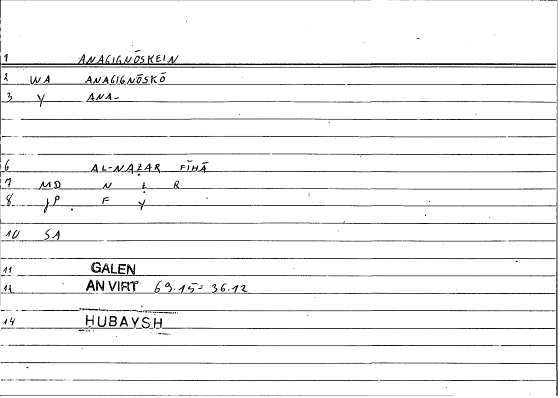 1 ANAGIGNŌSKEIN
2 WA ANAGIGNŌSKŌ
3 Y ANA-
6 AL-NAẒAR FĪHĀ
7 MD N Ẓ R
8 JP. F Y
10 SA
11 GALEN
12 AN VIRT 69.15 = 36.12
14 HUBAYSH